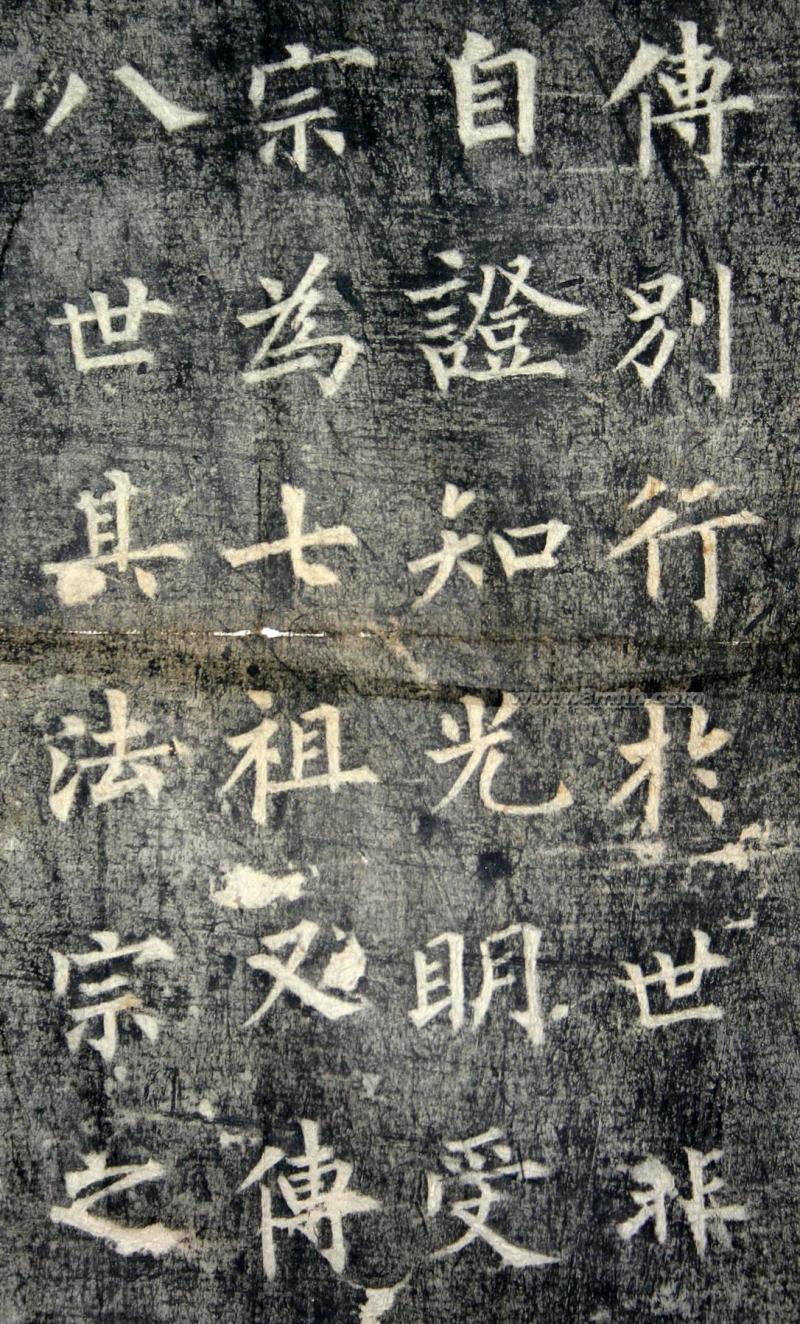 傳別行於世非
自證知光明受
宗為七祖又傳
八世其法宗之